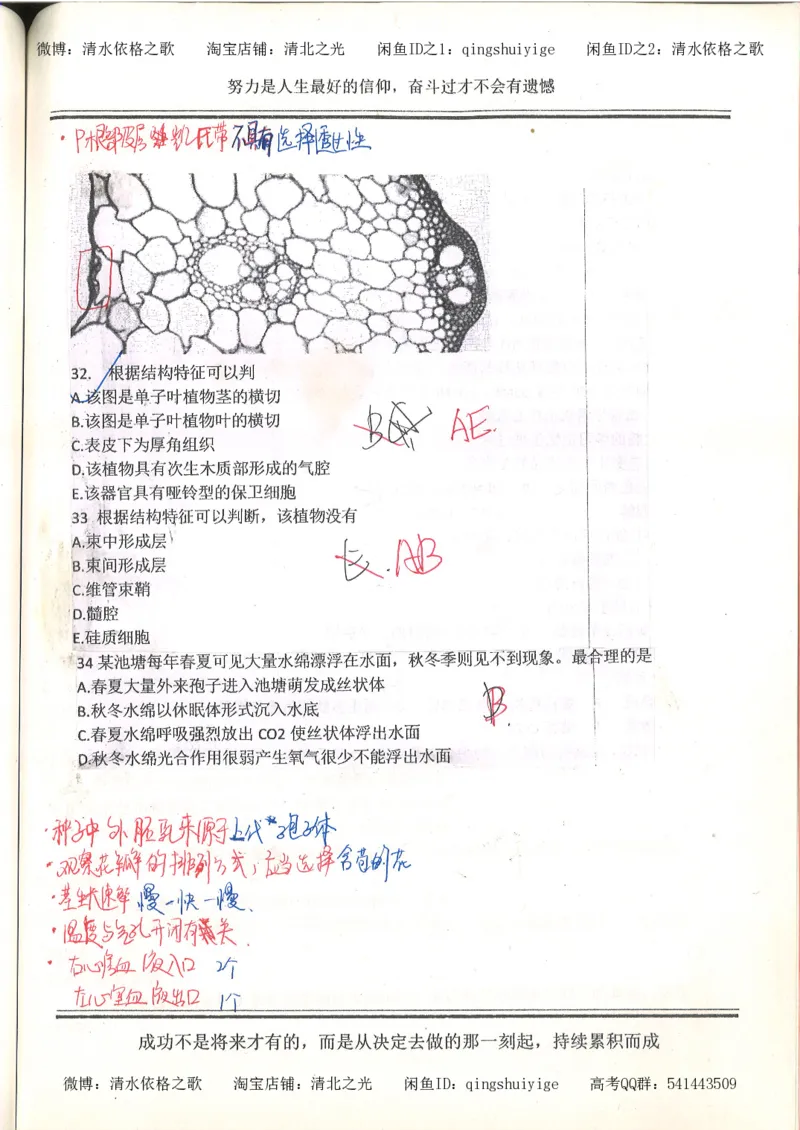 微博：清水依格之歌 淘宝店铺：清北之光 闲鱼ID之1：qingshuiyige 闲鱼ID之2：清水依格之歌
努力是人生最好的信仰，奋斗过才不会有遗憾
不具有选择透过性
32. 根据结构特征可以判
A.该图是单子叶植物茎的横切
B.该图是单子叶植物叶的横切
C.表皮下为厚角组织
AE
D.该植物具有次生木质部形成的气腔
E.该器官具有哑铃型的保卫细胞
33 根据结构特征可以判断，该植物没有
A.束中形成层
E. AB
B.束间形成层
C.维管束鞘
D.髓腔
E.硅质细胞
34 某池塘每年春夏可见大量水绵漂浮在水面，秋冬季则见不到现象。最合理的是
A.春夏大量外来孢子进入池塘萌发成丝状体
B.秋冬水绵以休眠体形式沉入水底
B.
C.春夏水绵呼吸强烈放出 CO2 使丝状体浮出水面
D.秋冬水绵光合作用很弱产生氧气很少不能浮出水面
·种子中外胚乳来源于上代孢子体
·观察花瓣的排列方式，应当选择含苞的花
·茎生长速率 慢一快一慢.
·温度与气孔开闭有关.
·右心室血液入口 2个
左心室血液出口 1个
成功不是将来才有的，而是从决定去做的那一刻起，持续累积而成
微博：清水依格之歌 淘宝店铺：清北之光 闲鱼ID：qingshuiyige 高考QQ群：541443509